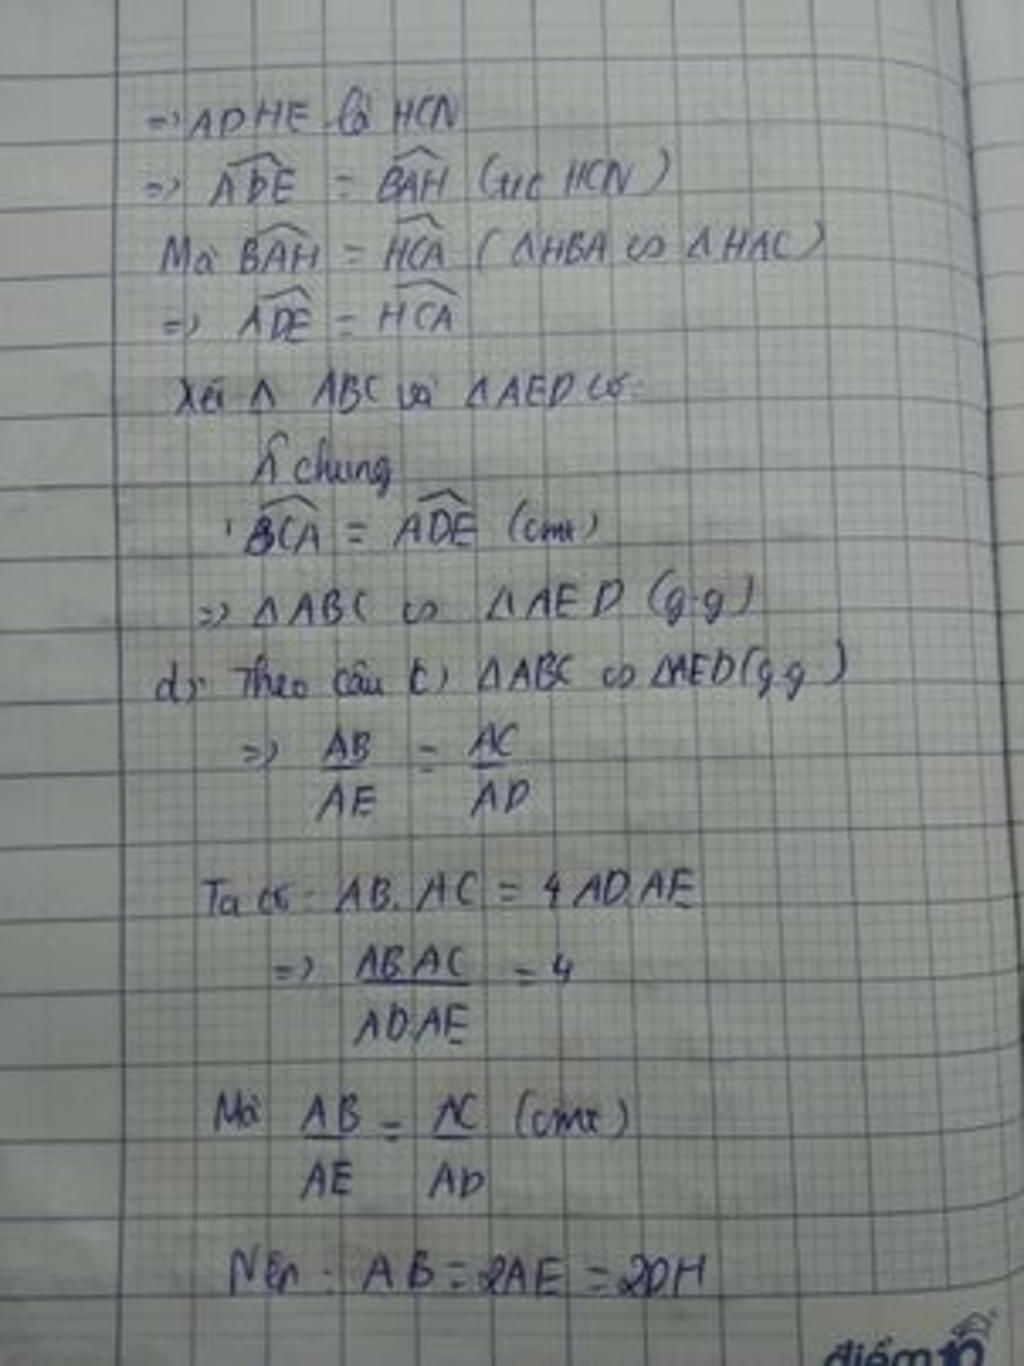 => ADHE là HCN
=> \widehat{ADE} = \widehat{BAH} (t/c HCN)
Mà \widehat{BAH} = \widehat{HCA} (ΔHBA ∽ ΔHAC)
=> \widehat{ADE} = \widehat{HCA}
Xét Δ ABC và ΔAED có:
Â chung
\widehat{BCA} = \widehat{ADE} (cmt)
=> ΔABC ∽ ΔAED (g.g)
d) Theo câu c) ΔABC ∽ ΔAED(g.g)
=> \frac{AB}{AE} = \frac{AC}{AD}
Ta có: AB.AC = 4 AD.AE
=> \frac{AB.AC}{AD.AE} = 4
Mà \frac{AB}{AE} = \frac{AC}{AD} (cmt)
Nên: AB = 2AE = 2DH
điểm 10